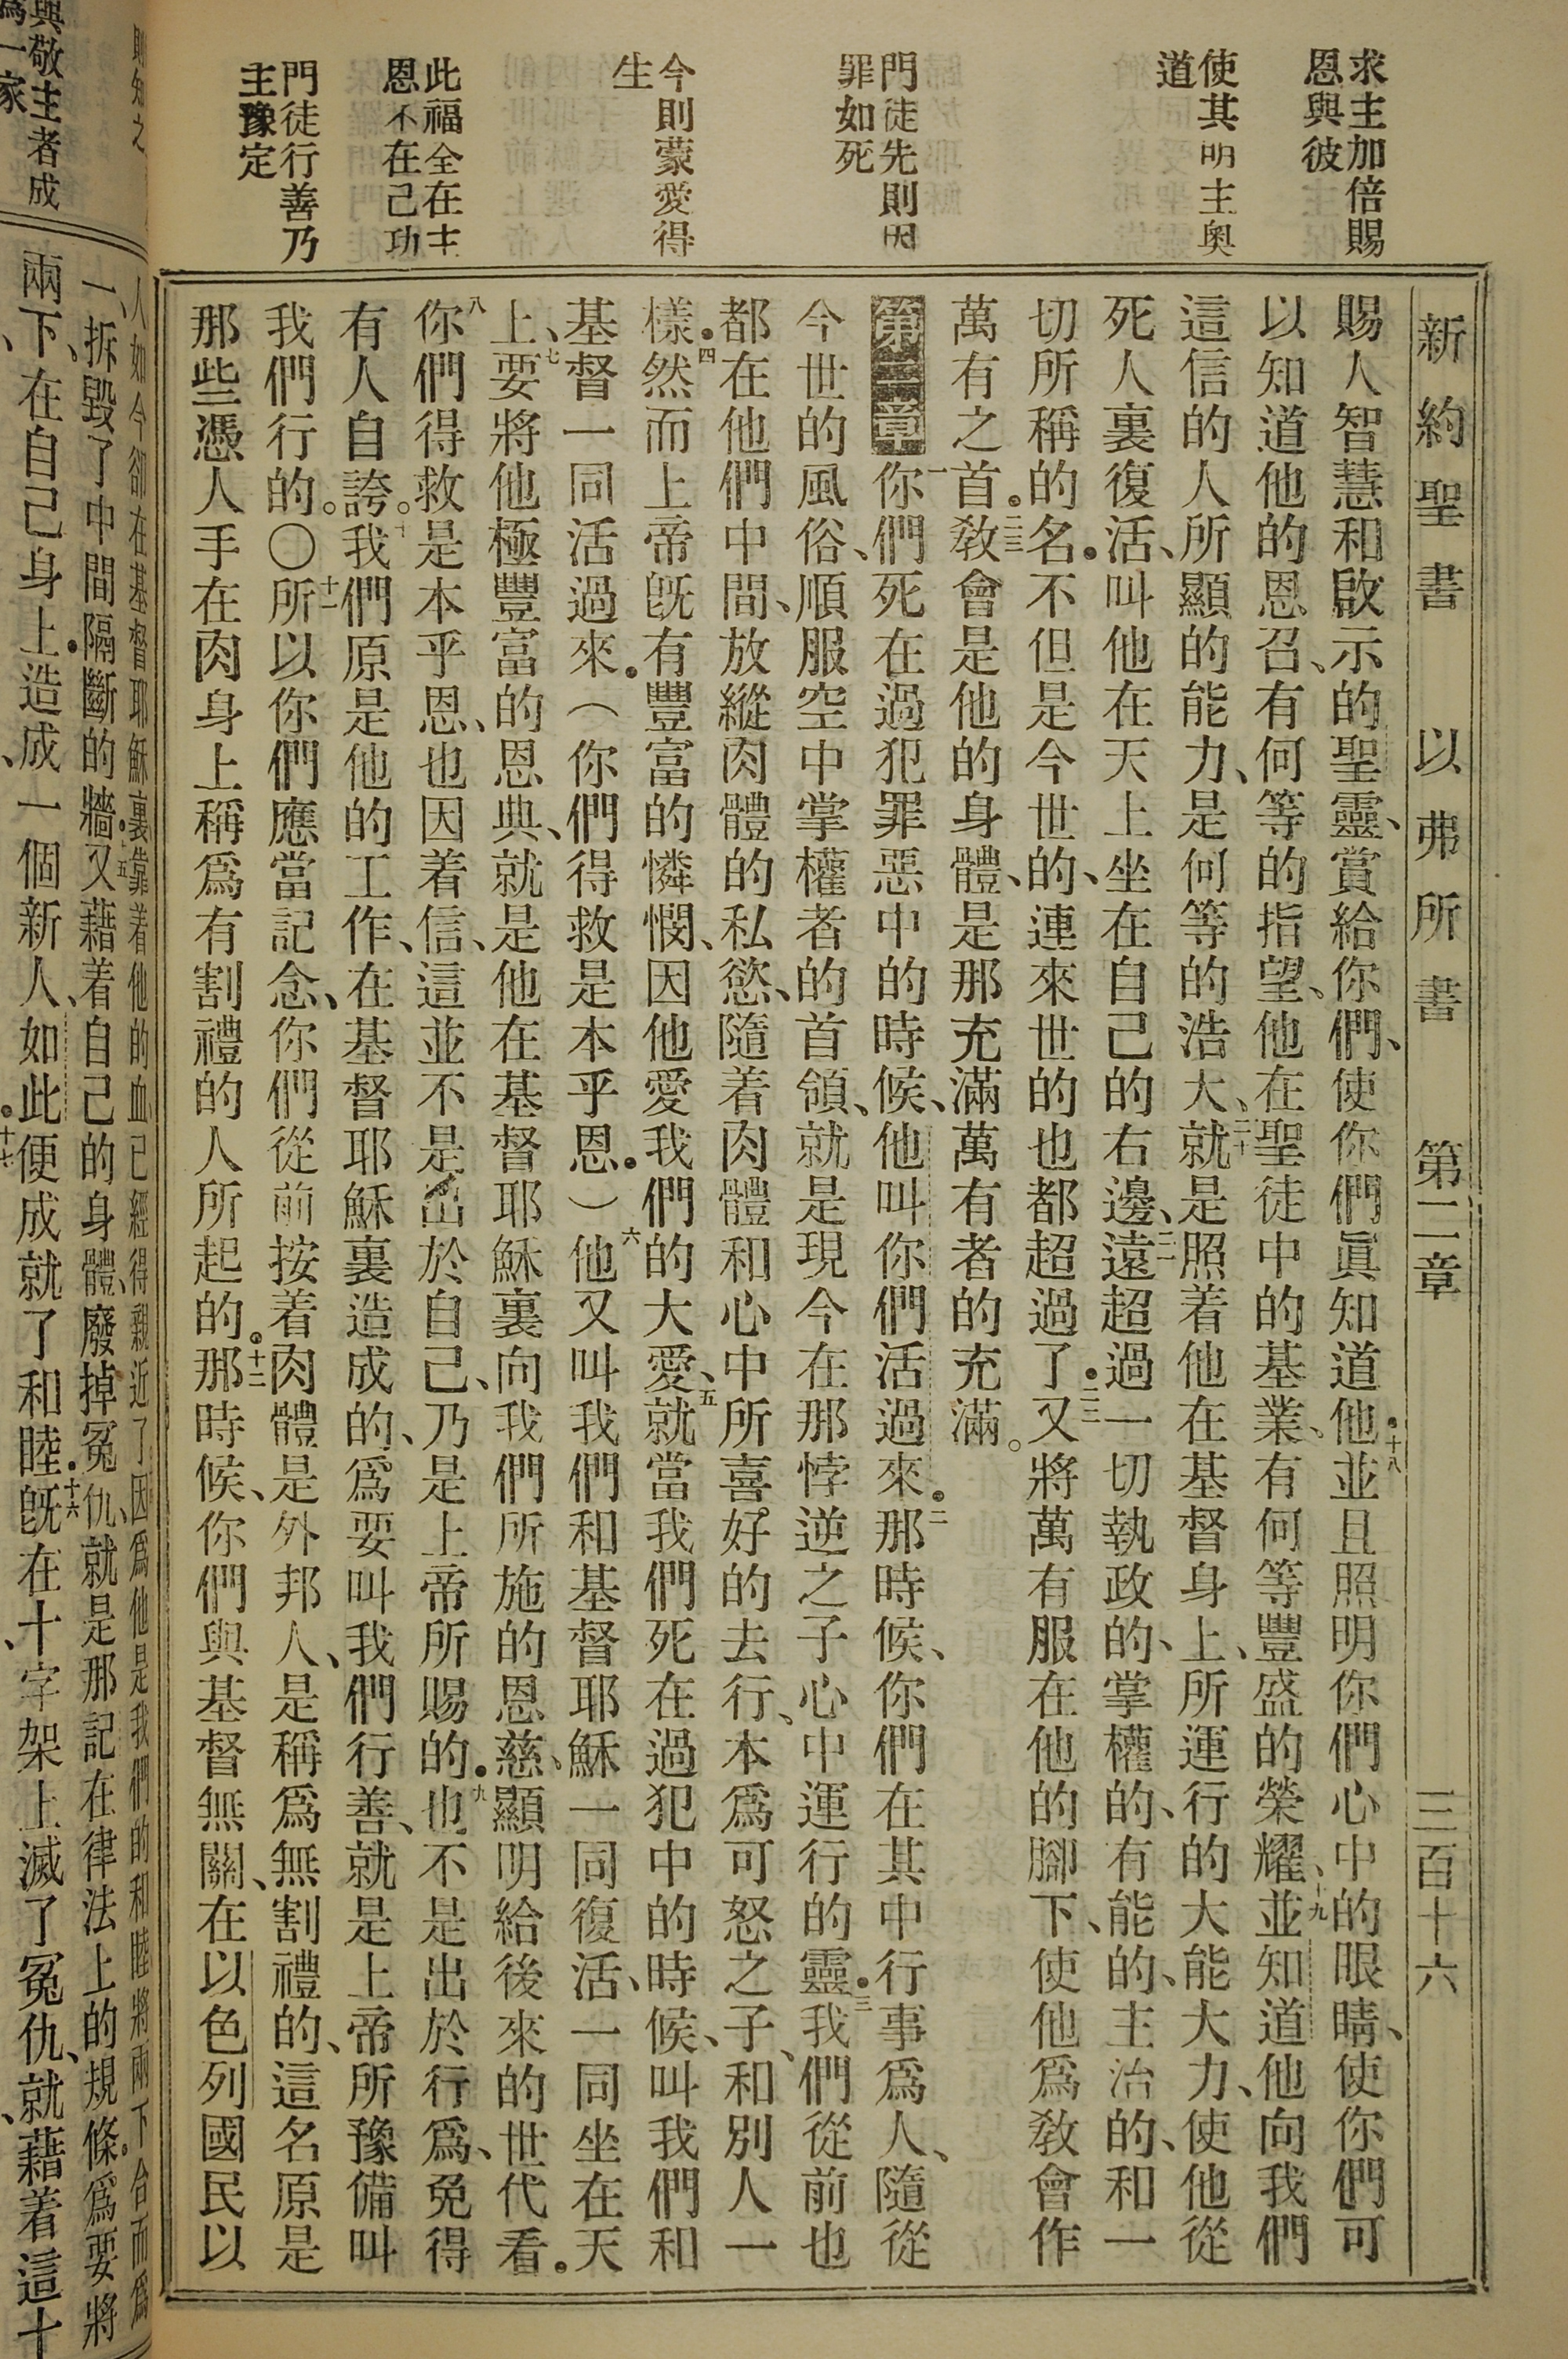 新約聖書 以弗所書 第二章 三百十六
求主加倍賜
恩與彼
使其明主奧
道
門徒先則因
罪如死
今則蒙愛得
生
此福全在主
恩不在己功
門徒行善乃
主豫定
賜人智慧和啟示的聖靈、賞給你們、使你們眞知道他。十八並且照明你們心中的眼睛、使你們可
以知道他的恩召、有何等的指望、他在聖徒中的基業、有何等豐盛的榮耀、十九並知道他向我們
這信的人所顯的能力、是何等的浩大、二十就是照着他在基督身上、所運行的大能大力、使他從
死人裏復活、叫他在天上坐在自己的右邊、二一遠超過一切執政的、掌權的、有能的、主治的、和一
切所稱的名。不但是今世的、連來世的也都超過了。二二又將萬有服在他的腳下、使他爲敎會作
萬有之首。二三敎會是他的身體、是那充滿萬有者的充滿。
第二章 一你們死在過犯罪惡中的時候、他叫你們活過來。二那時候、你們在其中行事爲人、隨從
今世的風俗、順服空中掌權者的首領、就是現今在那悖逆之子心中運行的靈。三我們從前也
都在他們中間、放縱肉體的私慾、隨着肉體和心中所喜好的去行、本爲可怒之子、和別人一
樣。四然而上帝旣有豐富的憐憫、因他愛我們的大愛、五就當我們死在過犯中的時候、叫我們和
基督一同活過來。(你們得救是本乎恩。)六他又叫我們和基督耶穌一同復活、一同坐在天
上、七要將他極豐富的恩典、就是他在基督耶穌裏向我們所施的恩慈、顯明給後來的世代看。
八你們得救是本乎恩、也因着信、這並不是出於自己、乃是上帝所賜的。九也不是出於行爲、免得
有人自誇。十我們原是他的工作、在基督耶穌裏造成的、爲要叫我們行善、就是上帝所豫備叫
我們行的。〇十一所以你們應當記念、你們從前按着肉體是外邦人、是稱爲無割禮的、這名原是
那些憑人手在肉身上稱爲有割禮的人所起的。十二那時候、你們與基督無關、在以色列國民以
則知之
與敬主者成
爲一家
人如今卻在基督耶穌裏靠着他的血、已經得親近了因爲他是我們的和睦將兩下合而爲
一、拆毀了中間隔斷的牆。十五又藉着自己的身體、廢掉冤仇、就是那記在律法上的規條。爲要將
兩下、在自己身上造成一個新人、如此便成就了和睦。十六旣在十字架上滅了冤仇、就藉着這十